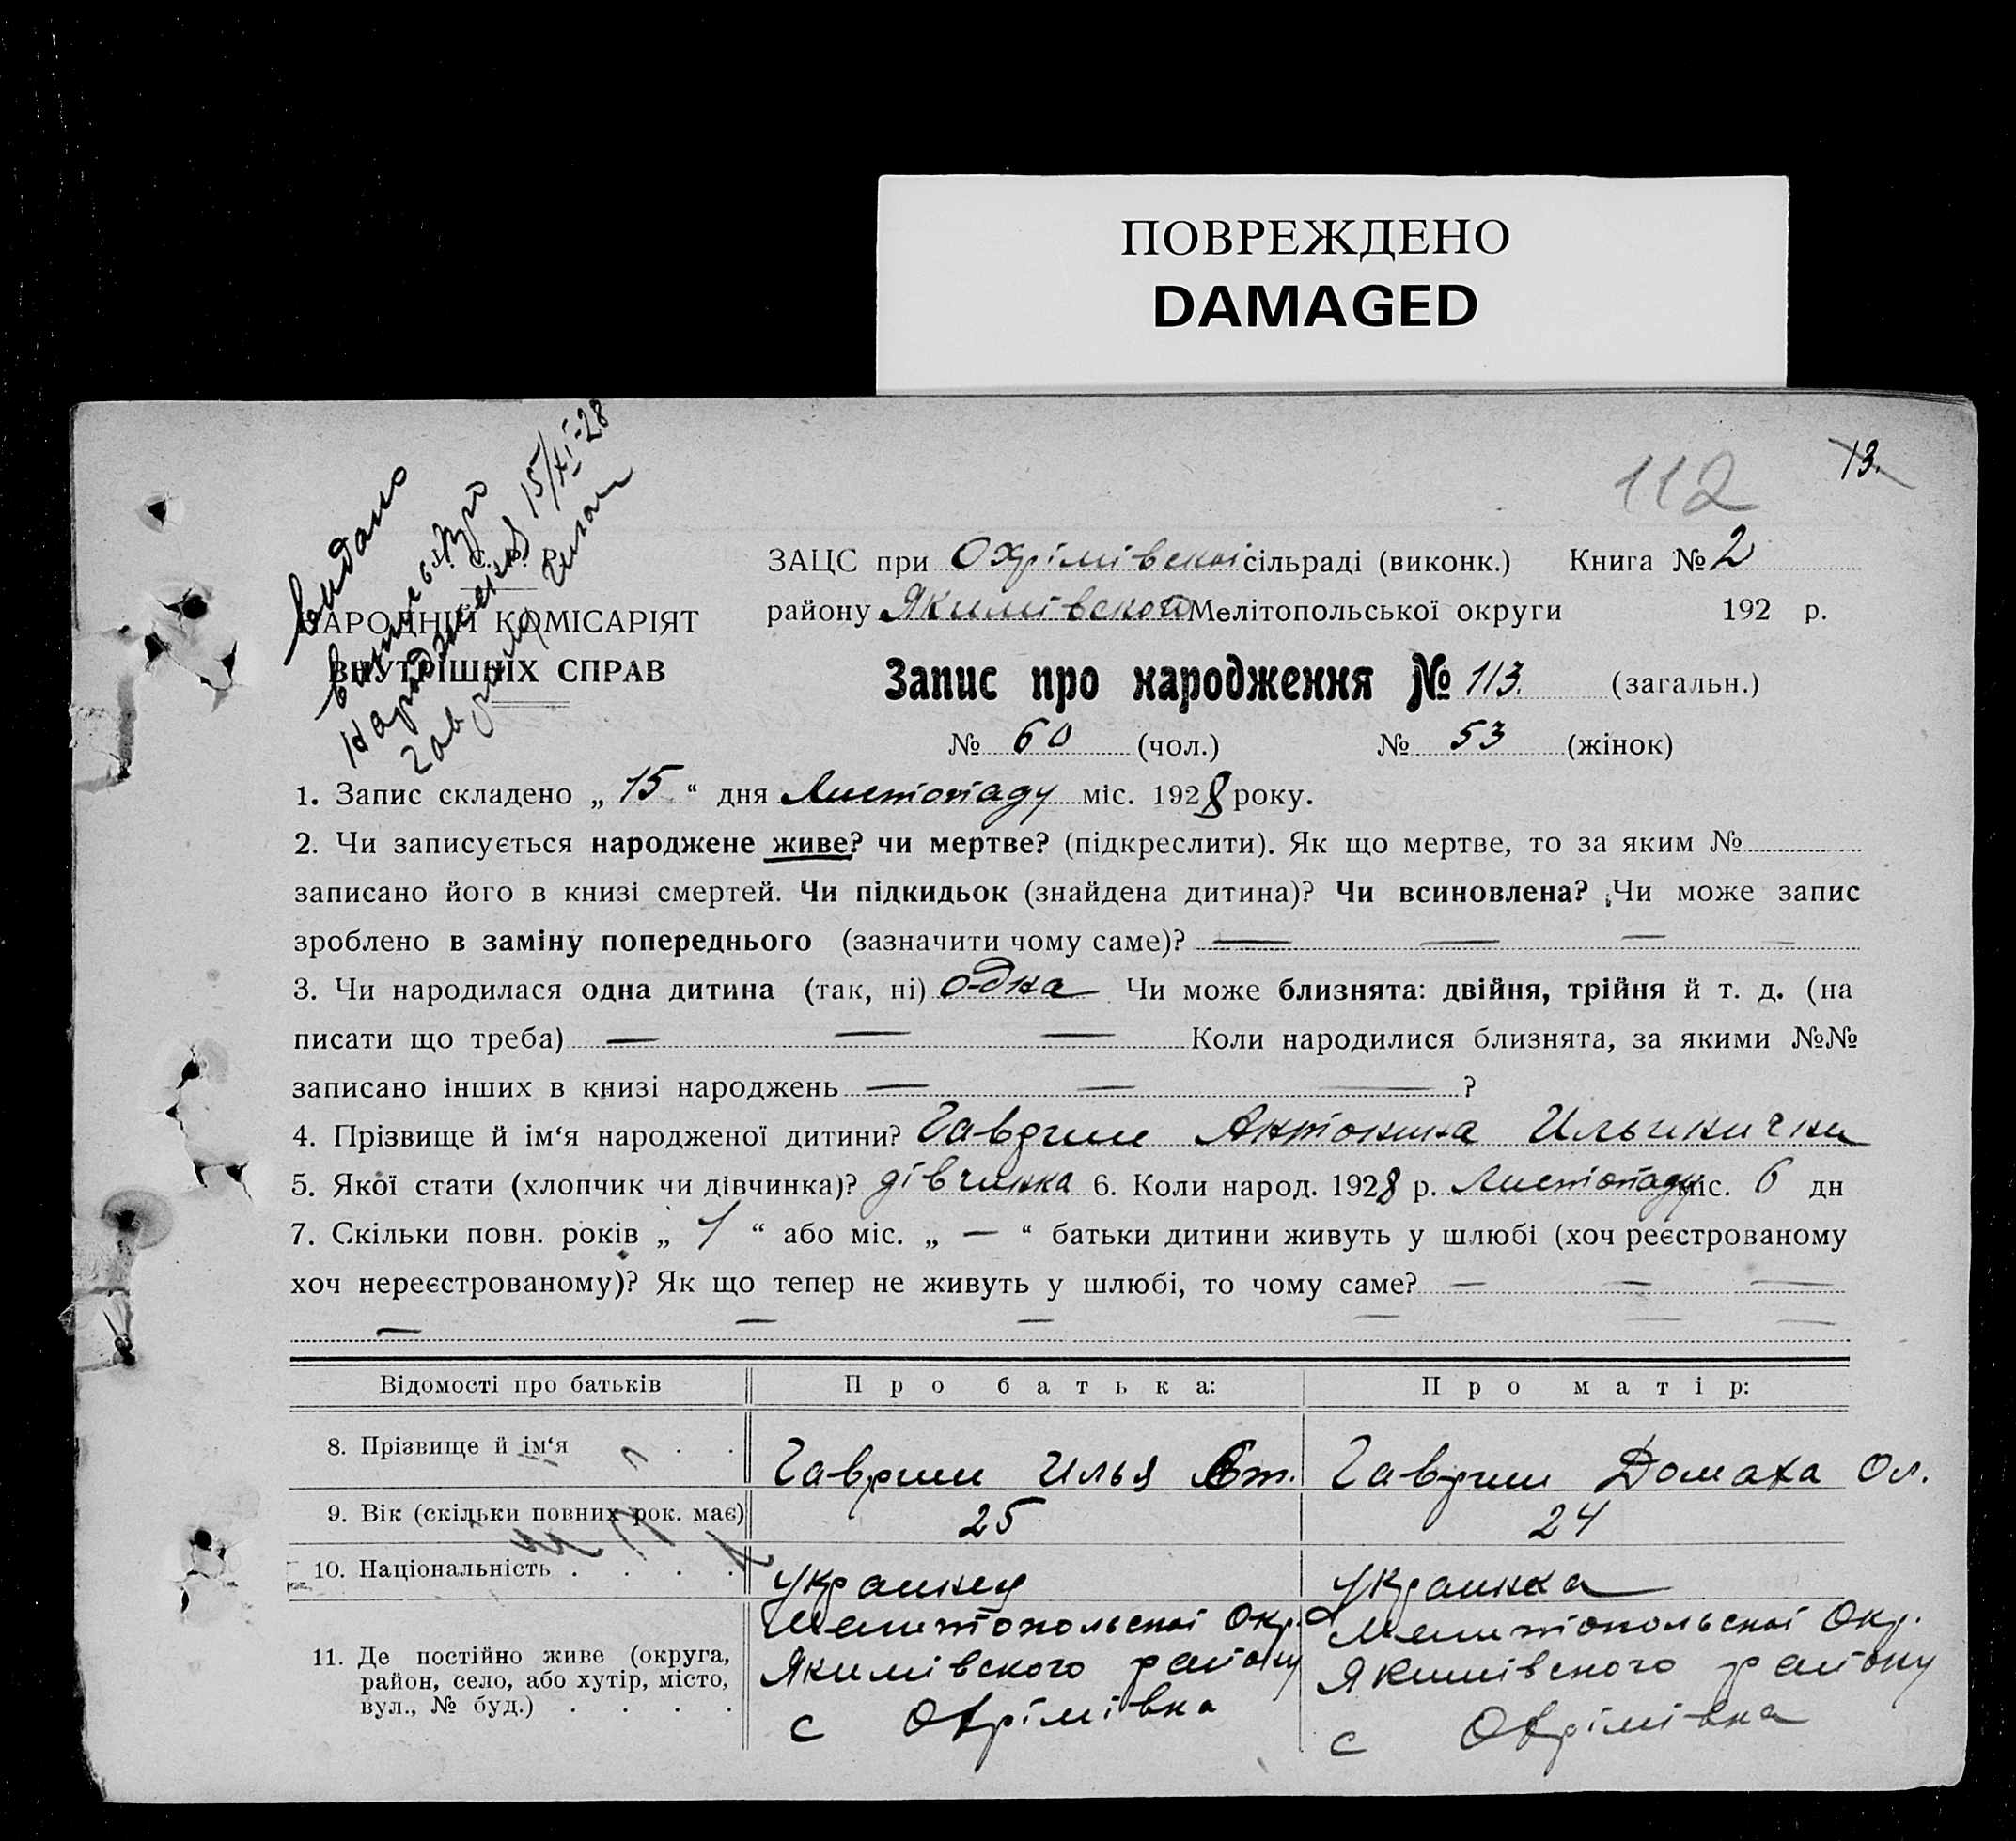 ПОВРЕЖДЕНО
DAMAGED
112
13.
Видано
виписъ про
народження 15/XI-28
ЗАЦС при Охрімівскоі сільраді (виконк.) Книга № 2
району Якимівского Мелітопольської округи 192 р.
НАРОДНІЙ КОМІСАРІЯТ
ВНУТРІШНІХ СПРАВ
Запис про народження № 113. (загальн.)
№ 60 (чол.) № 53 (жінок)
1. Запис складено „ 15 “ дня Листопаду міс. 1928 року.
2. Чи записується народжене живе? чи мертве? (підкреслити). Як що мертве, то за яким №
записано його в книзі смертей. Чи підкидьок (знайдена дитина)? Чи всиновлена? Чи може запис
зроблено в заміну попереднього (зазначити чому саме)? — — — —
3. Чи народилася одна дитина (так, ні) одна Чи може близнята: двійня, трійня й т. д. (на
писати що треба) — — — Коли народилися близнята, за якими №№
записано інших в книзі народжень — — — ?
4. Прізвище й ім‘я народженої дитини? Гаврили Антонина Ильинична
5. Якої стати (хлопчик чи дівчинка)? дівчинка 6. Коли народ. 1928 р. Листопаду міс. 6 дн
7. Скільки повн. років „ 1 “ або міс. „ — “ батьки дитини живуть у шлюбі (хоч реєстрованому
хоч нереєстрованому)? Як що тепер не живуть у шлюбі, то чому саме? — — —
— — — — — —
Відомості про батьків Про батька: Про матір:
8. Прізвище й ім‘я . . Илья Домаха Ол.
9. Вік (скільки повних рок. має) 25 24
10. Національність . . . . Украинец Украинка
11. Де постійно живе (округа, Мелитопольскоі Окр. Мелитопольскоі Окр.
район, село, або хутір, місто, Якимівского району Якимівского району
вул., № буд.) . . . . с Охрімівка с Охрімівка